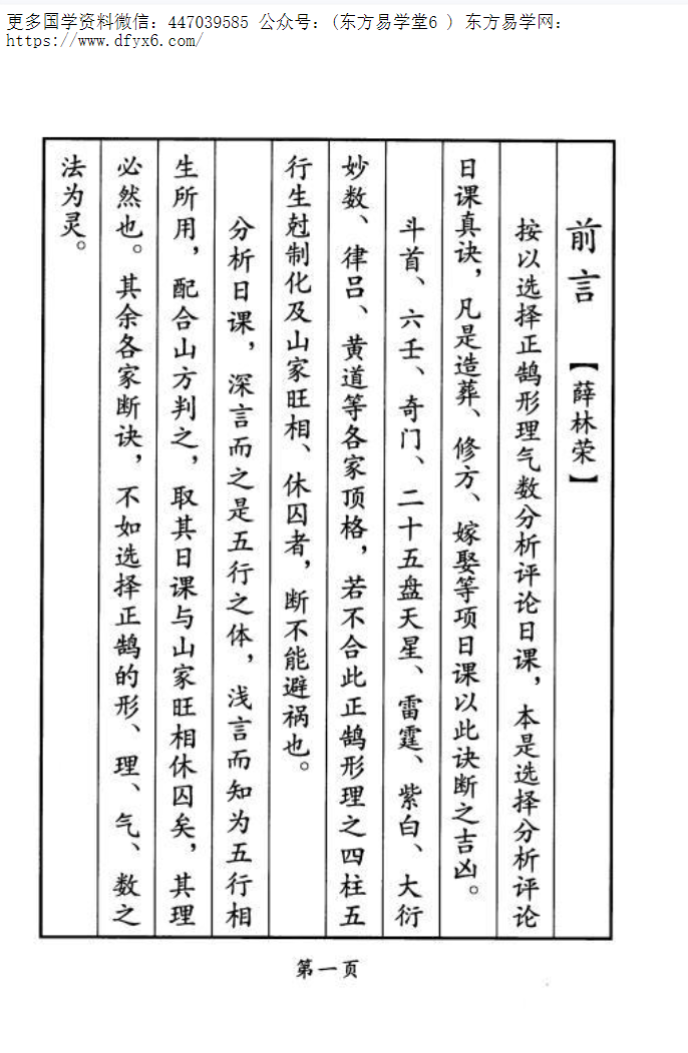 更多国学资料微信：447039585 公众号：(东方易学堂6 ) 东方易学网：
https://www.dfyx6.com/
前言 【薛林荣】
按以选择正鹄形理气数分析评论日课，本是选择分析评论
日课真诀，凡是造葬、修方、嫁娶等项日课以此诀断之吉凶。
斗首、六壬、奇门、二十五盘天星、雷霆、紫白、大衍
妙数、律吕、黄道等各家顶格，若不合此正鹄形理之四柱五
行生尅制化及山家旺相、休囚者，断不能避祸也。
分析日课，深言而之是五行之体，浅言而知为五行相
生所用，配合山方判之，取其日课与山家旺相休囚矣，其理
必然也。其余各家断诀，不如选择正鹄的形、理、气、数之
法为灵。
第一页